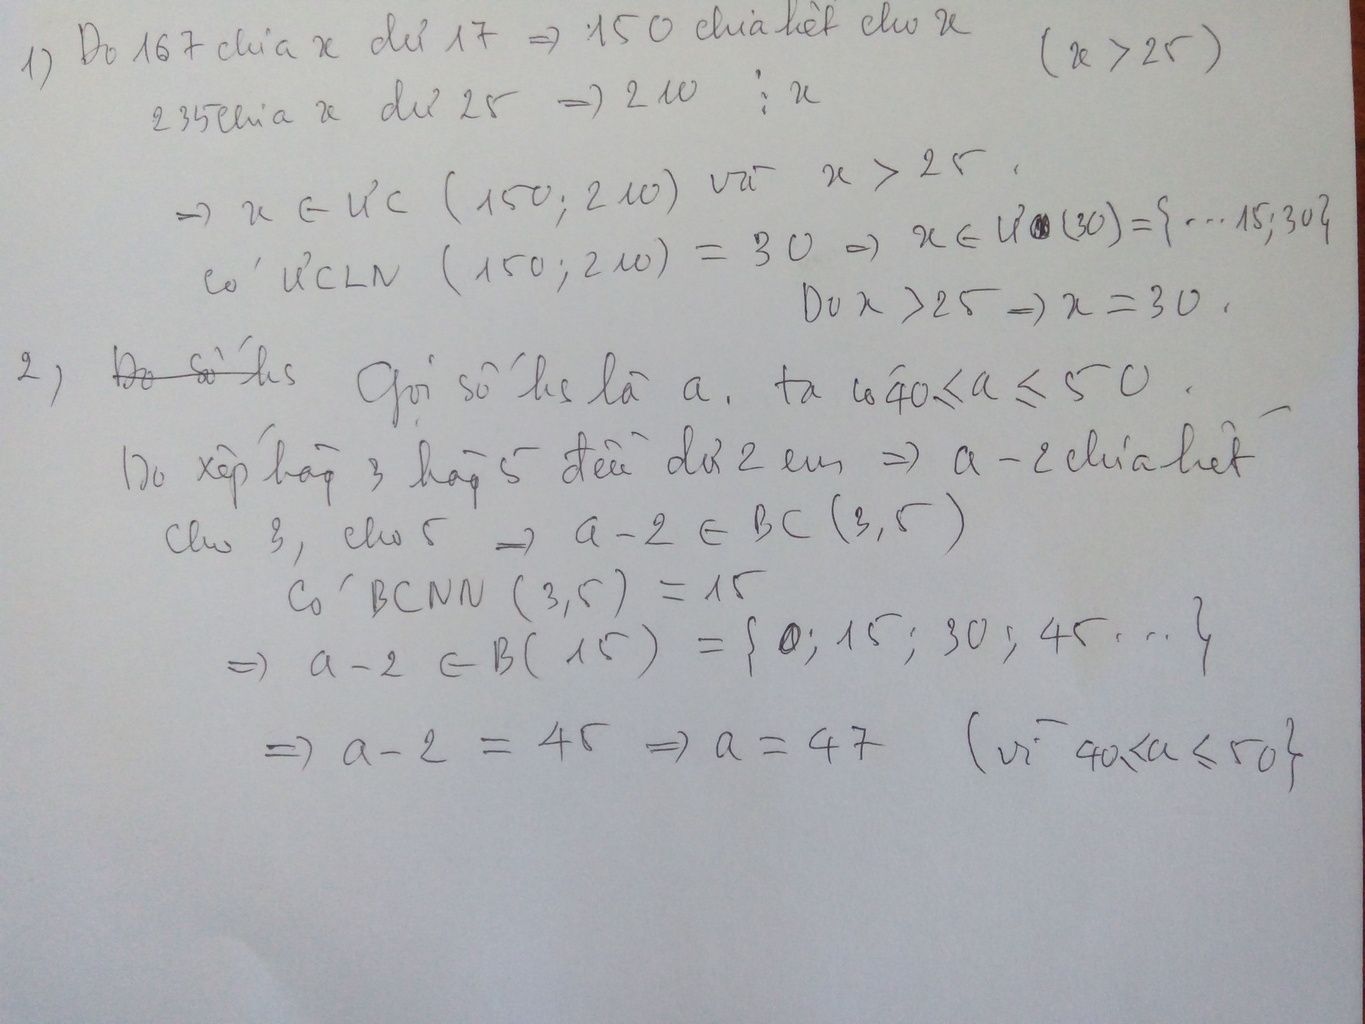 1) Do 167 chia x dư 17 => 150 chia hết cho x (x > 25)
235 chia x dư 25 => 210 ⋮ x
=> x ∈ ƯC (150; 210) và x > 25.
Có ƯCLN (150; 210) = 30 => x ∈ Ư (30) = {... 15; 30}
Do x > 25 => x = 30.
2) Do số hs Gọi số hs là a. ta có 40 ≤ a ≤ 50.
Do xếp hàg 3 hàg 5 đều dư 2 em => a - 2 chia hết
cho 3, cho 5 => a - 2 ∈ BC (3,5)
Có BCNN (3,5) = 15
=> a - 2 ∈ B( 15) = {0; 15; 30; 45 ... }
=> a - 2 = 45 => a = 47 (vì 40 ≤ a ≤ 50}